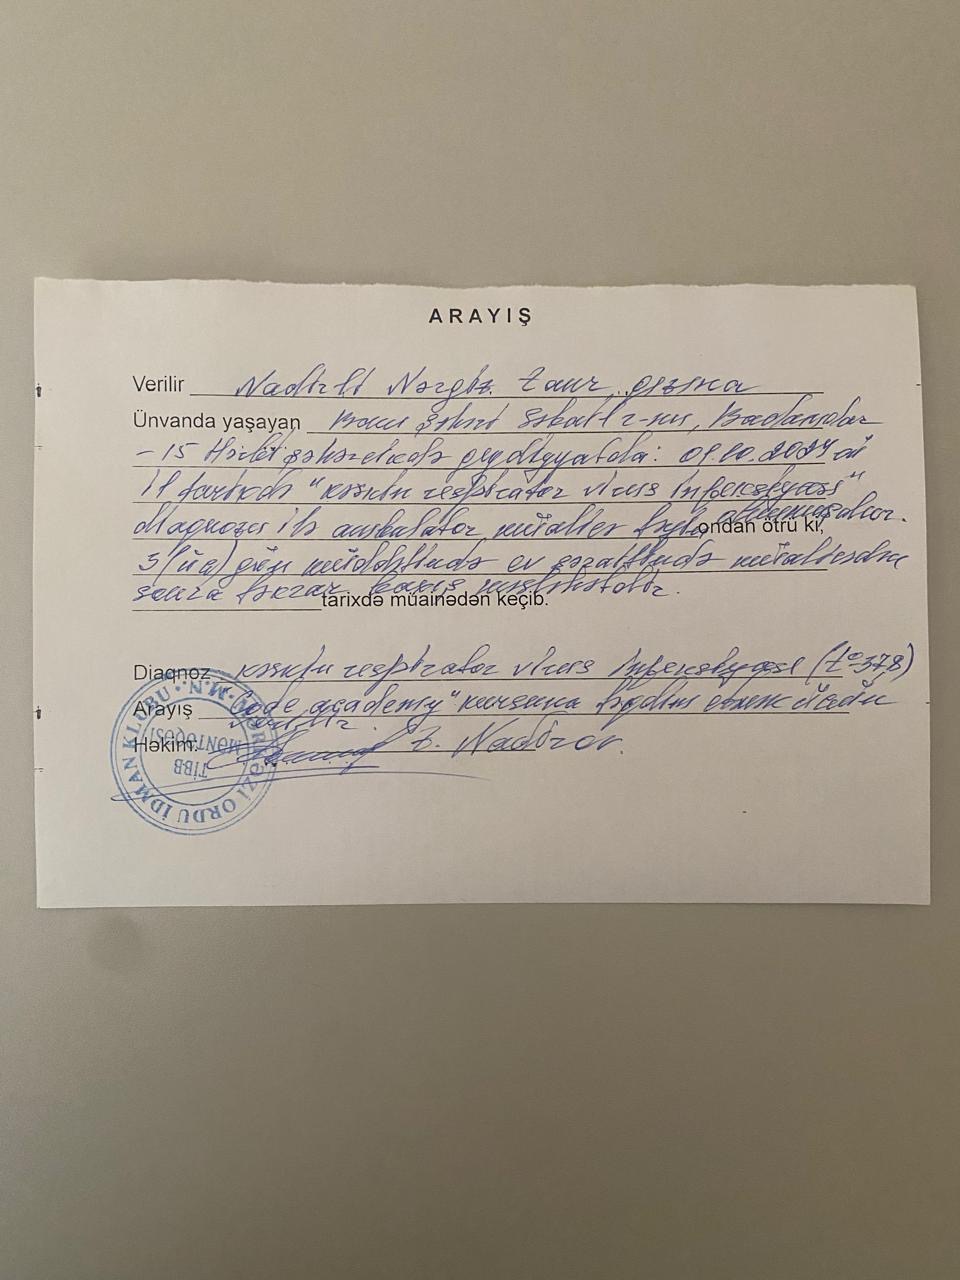 ARAYIŞ
Verilir Nadirli Nərgiz Zaur qızına
Ünvanda yaşayan Bakı şəhəri Səbail r-nu, Badamdar
-15 Hərbi şəhərcikdə qeydiyyatda: 01.10.2024-cü
il tarixdə "kəskin respirator virus infeksiyası"
diaqnozu ilə ambulator müalicə təyin olunmuşdur.
ondan ötrü ki,
3 (üç) gün müddətində ev şəraitində müalicədən
sonra təkrar baxış məsləhətdir.
tarixdə müainədən keçib.
Diaqnoz kəskin respirator virus infeksiyası (t° 37,8)
Arayış "Code academy" kursuna təqdim etmək üçün
verilir
Həkim: Z. Nadirov.
MƏRKƏZİ ORDU İDMAN KLUBU · M.N.
TİBB
MƏNTƏQƏSİ